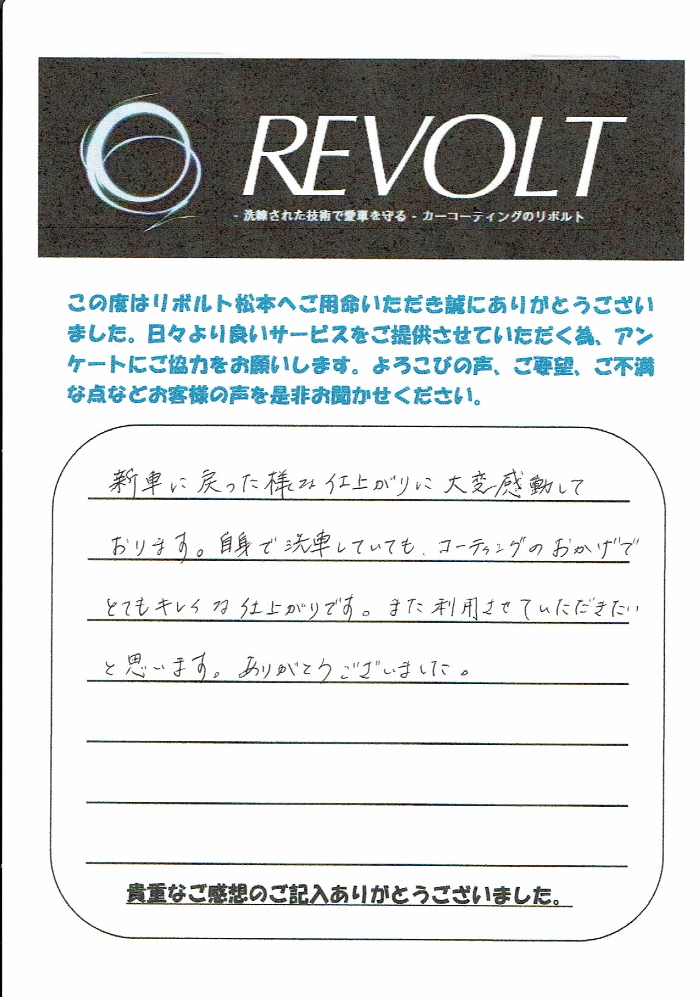 REVOLT
- 洗練された技術で愛車を守る - カーコーティングのリボルト
この度はリボルト松本へご用命いただき誠にありがとうござい
ました。日々より良いサービスをご提供させていただく為、アン
ケートにご協力をお願いします。よろこびの声、ご要望、ご不満
な点などお客様の声を是非お聞かせください。
新車に戻った様な仕上がりに大変感動して
おります。自身で洗車していても、コーティングのおかげで
とてもキレイな仕上がりです。また利用させていただきたい
と思います。ありがとうございました。
貴重なご感想のご記入ありがとうございました。